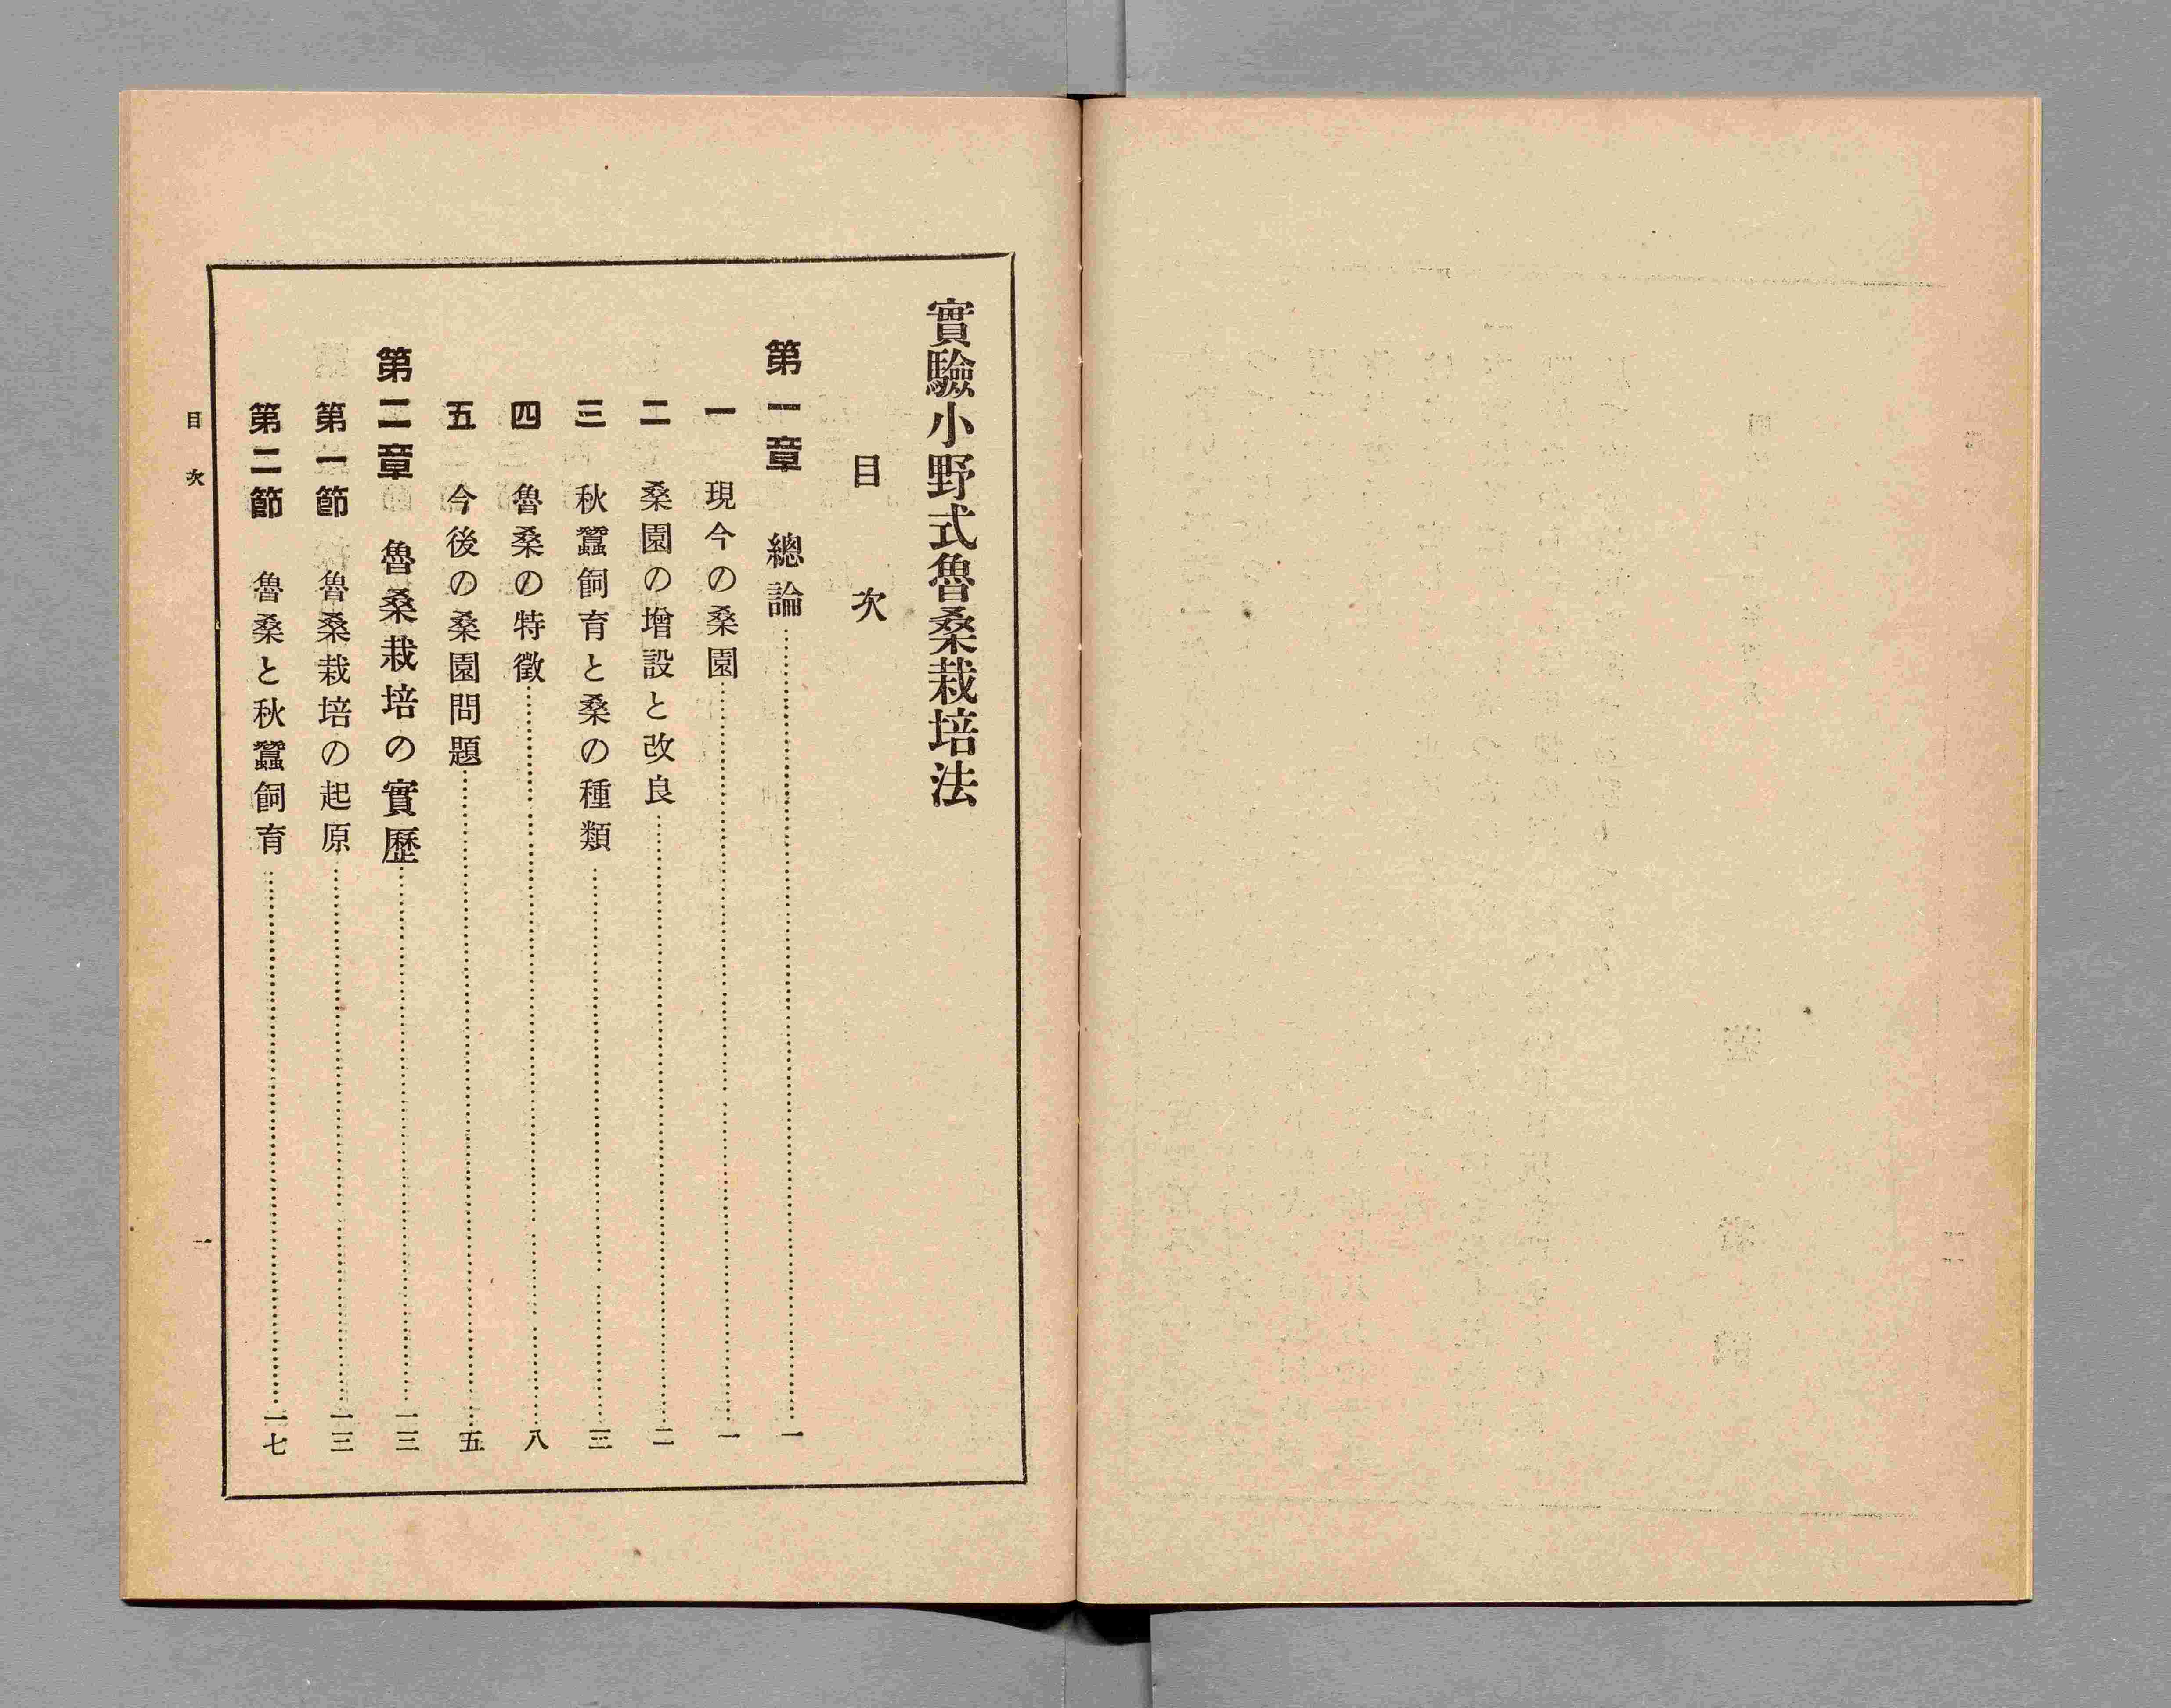 實驗小野式魯桑栽培法
目次
第一章 總論……一
一 現今の桑園……一
二 桑園の增設と改良……二
三 秋蠶飼育と桑の種類……三
四 魯桑の特徵……八
五 今後の桑園問題……五
第二章 魯桑栽培の實歷……一三
第一節 魯桑栽培の起原……一三
第二節 魯桑と秋蠶飼育……一七
目次
一